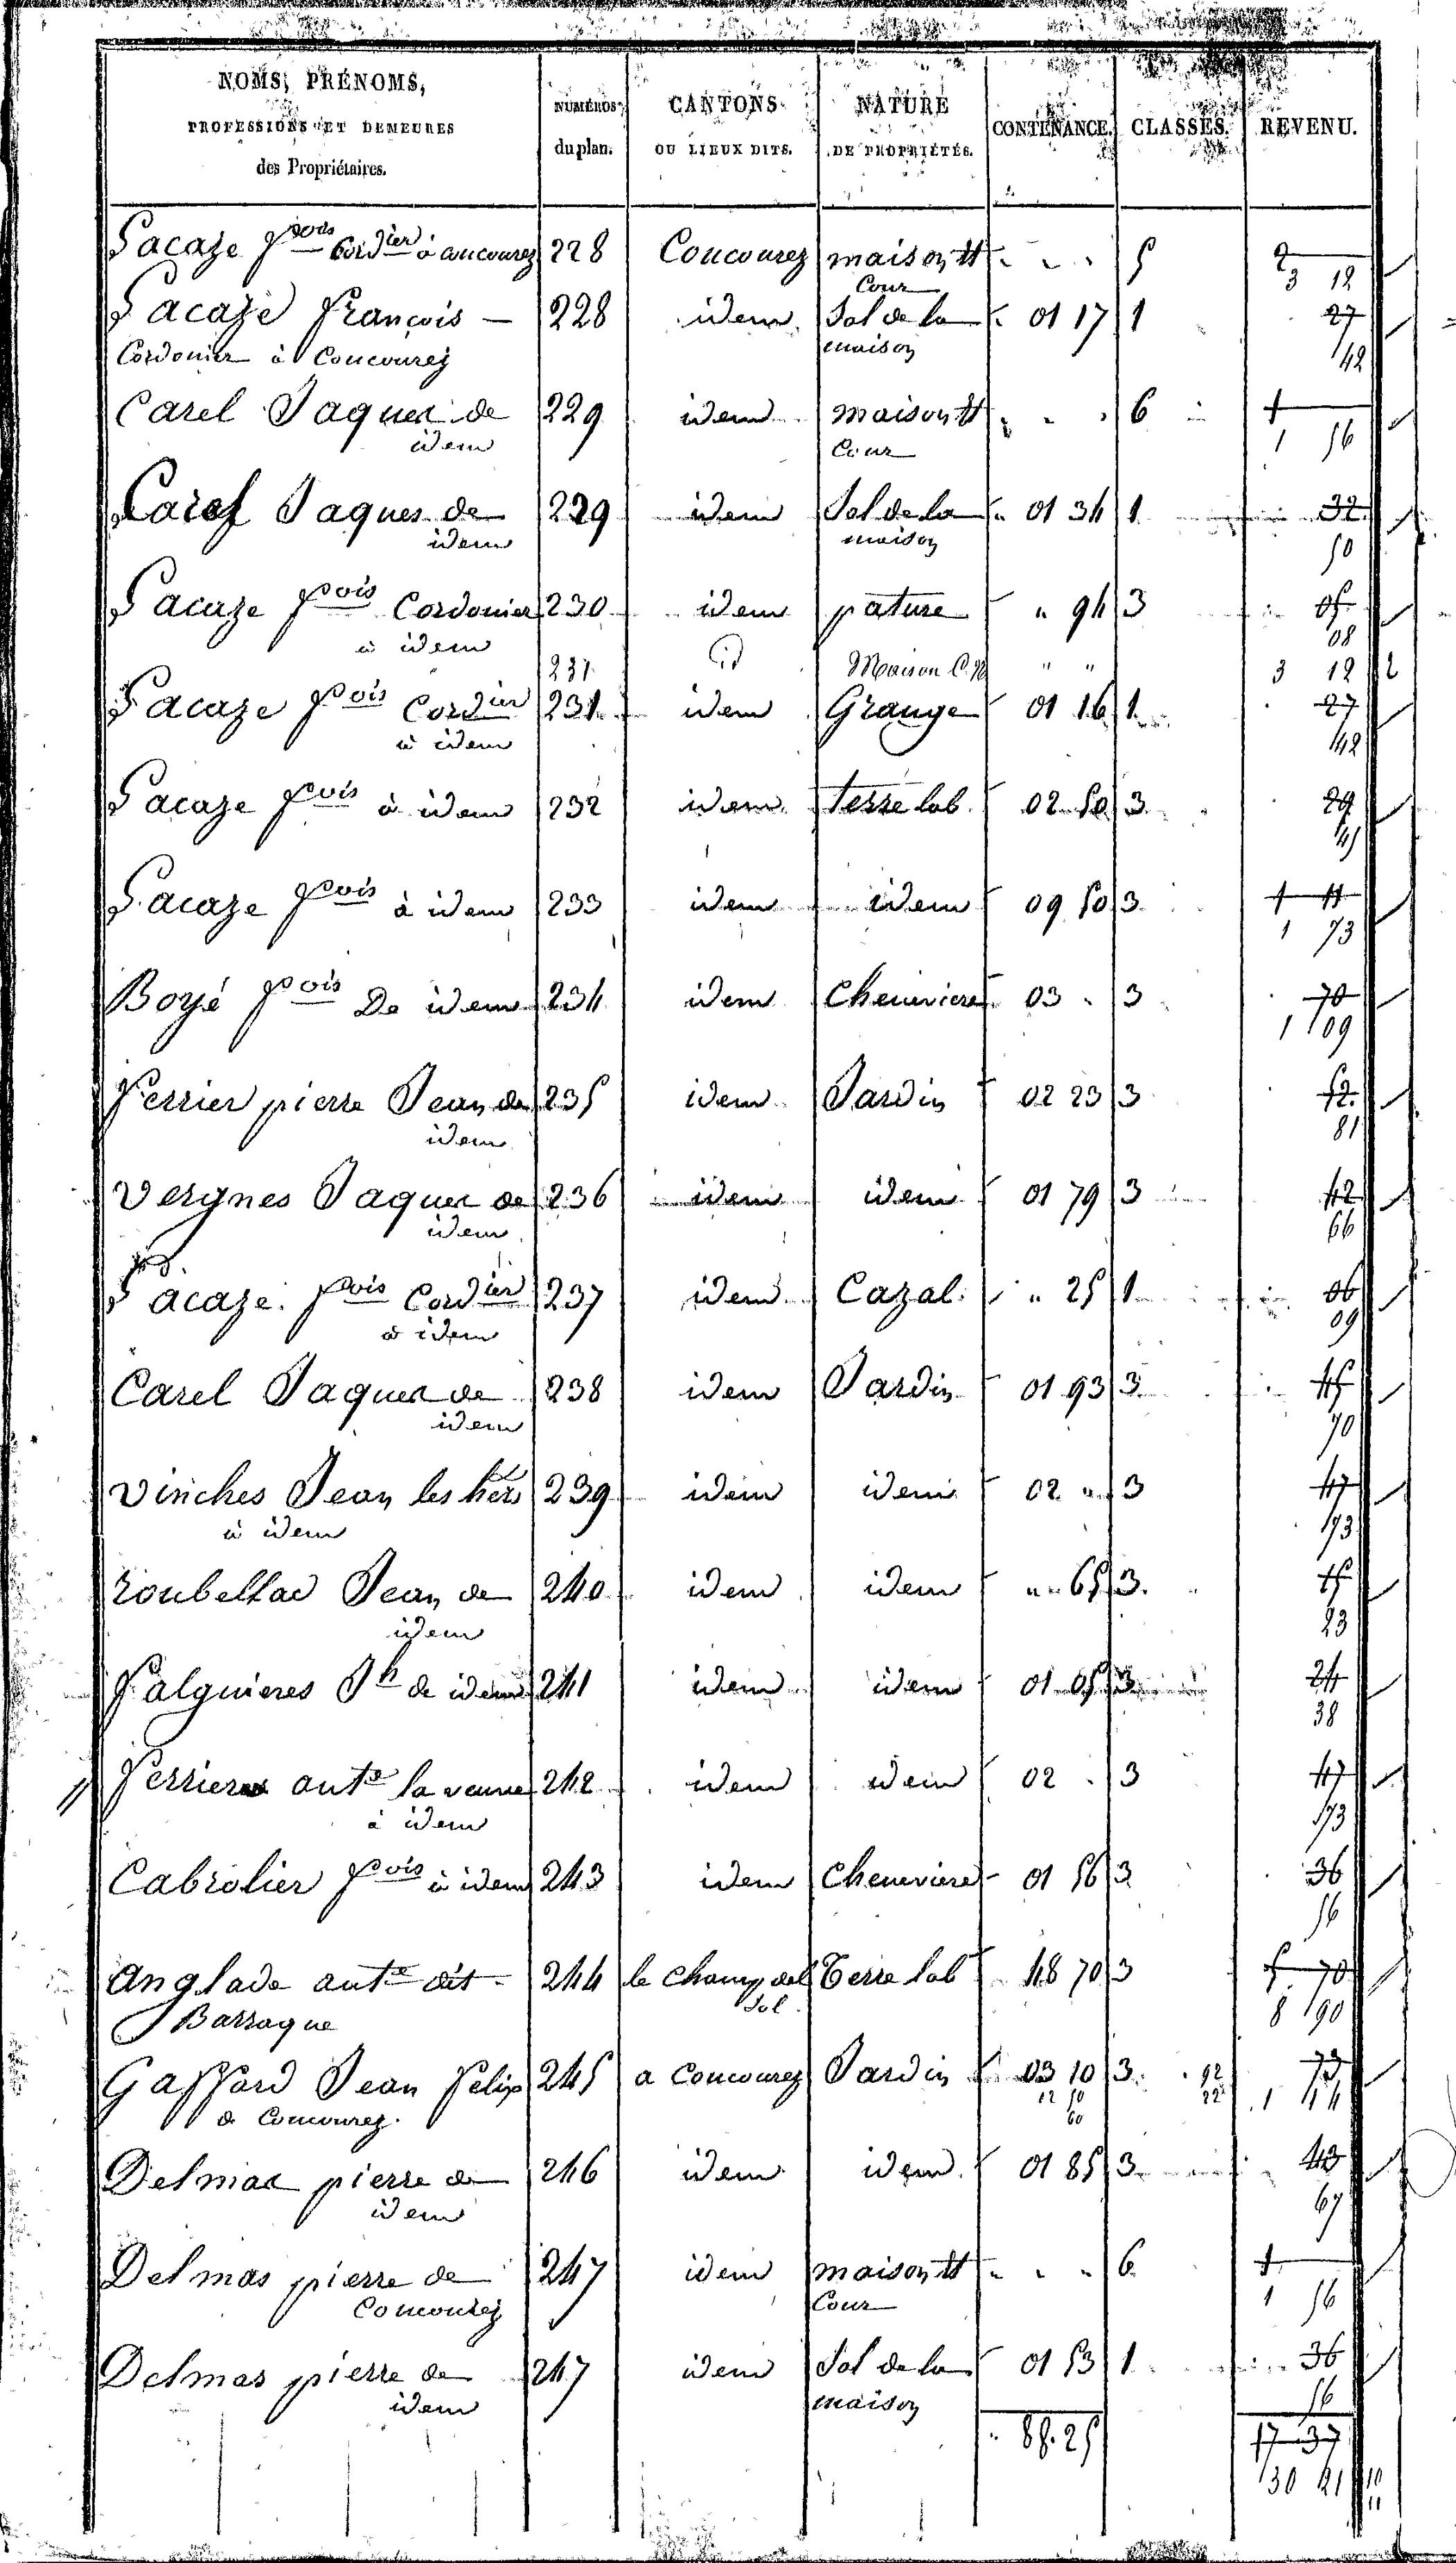 NOMS, PRÉNOMS, PROFESSIONS ET DEMEURES des Propriétaires. NUMÉROS du plan. CANTONS OU LIEUX DITS. NATURE DE PROPRIÉTÉS. CONTENANCE. CLASSES. REVENU.
Lacaze fçois Cordier à concourez 228 Concourez maison et - - - 5 2
Cour 3 12
Lacaze françois 228 idem Sol de la 01 17 1 27
Cordonier à Concourez maison 42
Carel Jaques de 229 idem maison et - - - 6 1
idem Cour 1 56
Carel Jaques de 229 idem Sol de la 01 34 1 32
idem maison 50
Lacaze fçois Cordonier 230 idem pature " 94 3 05
à idem 08
231 id Maison C. N " " 3 12 2
Lacaze fçois Cordier 231 idem Grange 01 16 1 27
à idem 42
Lacaze fçois à idem 232 idem terre lab. 02 50 3 29
45
Lacaze fçois à idem 233 idem idem 09 50 3 1 11
1 73
Boyé fçois De idem 234 idem Cheneviere 03 " 3 70
1 09
ferrier pierre Jean de 235 idem Jardin 02 23 3 52
idem 81
Vergnes Jaques de 236 idem idem 01 79 3 42
idem 66
Lacaze fçois Cordier 237 idem Cazal " 25 1 06
à idem 09
Carel Jaques de 238 idem Jardin 01 93 3 45
idem 70
Vinches Jean les hers 239 idem idem 02 " 3 47
à idem 73
roubellac Jean de 240 idem idem " 65 3 15
idem 23
falguieres Jh de idem 241 idem idem 01 05 3 24
38
ferrieres ante la veuve 242 idem idem 02 " 3 47
à idem 73
Cabrolier fçois à idem 243 idem Cheneviere 01 56 3 36
56
anglade ante dit 244 le champ del Terre lab 48 70 3 5 70
Barraque sol 8 90
Gaffard Jean felix 245 a Concourez Jardin 03 10 3 92 73
a Concourez. 12 50 22 1 14
60
Delmas pierre de 246 idem idem 01 85 3 43
idem 67
Delmas pierre de 247 idem maison et - - - 6 1
Concourez Cour 1 56
Delmas pierre de 247 idem Sol de la 01 53 1 36
idem maison 56
88.25 17 37
30 21 10
11